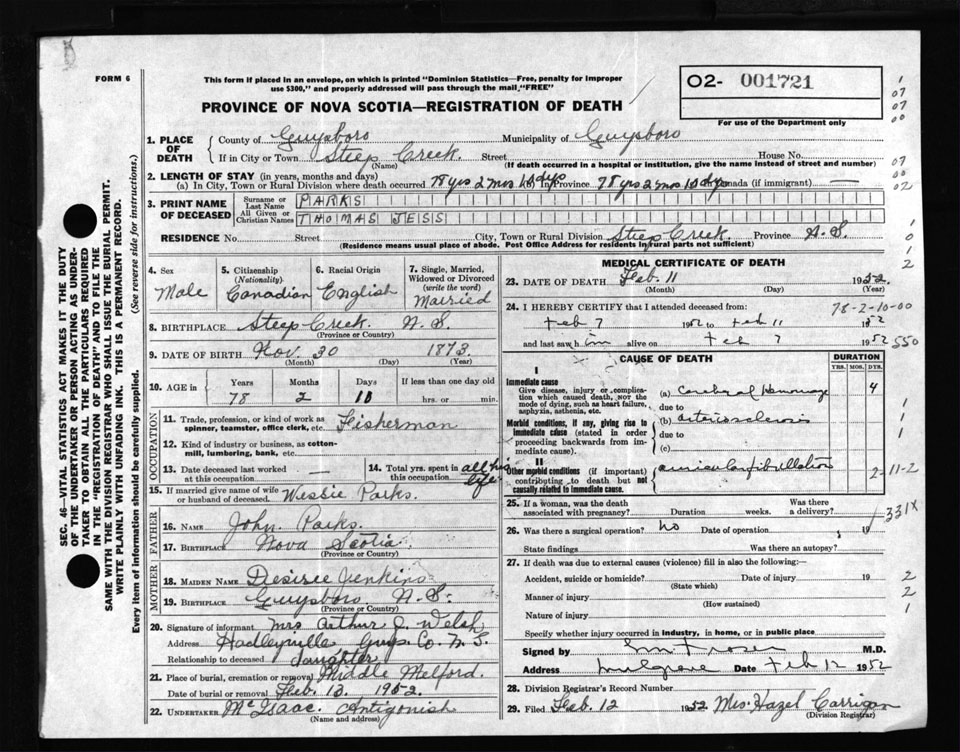 FORM 6
This form if placed in an envelope, on which is printed "Dominion Statistics—Free, penalty for improper
use $300," and properly addressed will pass through the mail "FREE"
PROVINCE OF NOVA SCOTIA—REGISTRATION OF DEATH
O2- 001721
For use of the Department only
1. PLACE OF DEATH
County of Guysboro Municipality of Guysboro
If in City or Town Steep Creek. Street House No.
(Name) (If death occurred in a hospital or institution, give the name instead of street and number)
2. LENGTH OF STAY (in years, months and days)
(a) In City, Town or Rural Division where death occurred 78 yrs 2 mos 10 dys In Province 78 yrs 2 mos 10 dys Canada (if immigrant)
3. PRINT NAME OF DECEASED
Surname or Last Name PARKS
All Given or Christian Names THOMAS JESS
RESIDENCE No. Street City, Town or Rural Division Steep Creek. Province N.S.
(Residence means usual place of abode. Post Office Address for residents in rural parts not sufficient)
4. Sex Male
5. Citizenship (Nationality) Canadian
6. Racial Origin English
7. Single, Married, Widowed or Divorced (write the word) Married
8. BIRTHPLACE Steep Creek. N.S.
(Province or Country)
9. DATE OF BIRTH Nov. 30 1873.
(Month) (Day) (Year)
10. AGE in Years Months Days If less than one day old
78 2 10 hrs. or min.
OCCUPATION
11. Trade, profession, or kind of work as spinner, teamster, office clerk, etc. Fisherman
12. Kind of industry or business, as cotton-mill, lumbering, bank, etc.
13. Date deceased last worked at this occupation —
14. Total yrs. spent in this occupation all his life
15. If married give name of wife or husband of deceased. Wessie Parks.
FATHER
16. NAME John Parks.
17. BIRTHPLACE Nova Scotia.
(Province or Country)
MOTHER
18. MAIDEN NAME Desiree Jenkins
19. BIRTHPLACE Guysboro N.S.
(Province or Country)
20. Signature of informant Mrs Arthur J. Welsh
Address Hadleyville Guys. Co. N.S.
Relationship to deceased daughter
21. Place of burial, cremation or removal Middle Melford.
Date of burial or removal Feb. 13. 1952.
22. UNDERTAKER McIsaac Antigonish
(Name and address)
MEDICAL CERTIFICATE OF DEATH
23. DATE OF DEATH Feb. 11 1952
(Month) (Day) (Year)
24. I HEREBY CERTIFY that I attended deceased from: 78-2-10-00
Feb 7 1952 to Feb 11 1952
and last saw him alive on Feb 7 1952 550
CAUSE OF DEATH
DURATION
YRS. MOS. DYS.
I
Immediate cause
Give disease, injury or complication which caused death, not the mode of dying, such as heart failure, asphyxia, asthenia, etc.
(a) Cerebral Hemorrage 4
due to
Morbid conditions, if any, giving rise to immediate cause (stated in order proceeding backwards from immediate cause).
(b) arteriosclerosis
due to
(c)
II
Other morbid conditions (if important) contributing to death but not causally related to immediate cause.
auricular fibrillation 2-11-2
25. If a woman, was the death associated with pregnancy? Duration weeks. Was there a delivery?
331X
26. Was there a surgical operation? No Date of operation 19
State findings Was there an autopsy?
27. If death was due to external causes (violence) fill in also the following:—
Accident, suicide or homicide? Date of injury 19
(State which)
Manner of injury
(How sustained)
Nature of injury
Specify whether injury occurred in industry, in home, or in public place
Signed by M.D.
Address Mulgrave Date Feb 12 1952
28. Division Registrar's Record Number
29. Filed Feb. 12 1952 Mrs. Hazel Carrigan
(Division Registrar)
SEC. 46—VITAL STATISTICS ACT MAKES IT THE DUTY
OF THE UNDERTAKER OR PERSON ACTING AS UNDER-
TAKER TO OBTAIN ALL THE PARTICULARS REQUIRED
IN THE "REGISTRATION OF DEATH" AND TO FILE THE
SAME WITH THE DIVISION REGISTRAR WHO SHALL ISSUE THE BURIAL PERMIT.
WRITE PLAINLY WITH UNFADING INK. THIS IS A PERMANENT RECORD.
Every item of information should be carefully supplied. (See reverse side for instructions.)
1
07
07
00
07
00
02
1
0
1
2
1
1
1
2
2
1